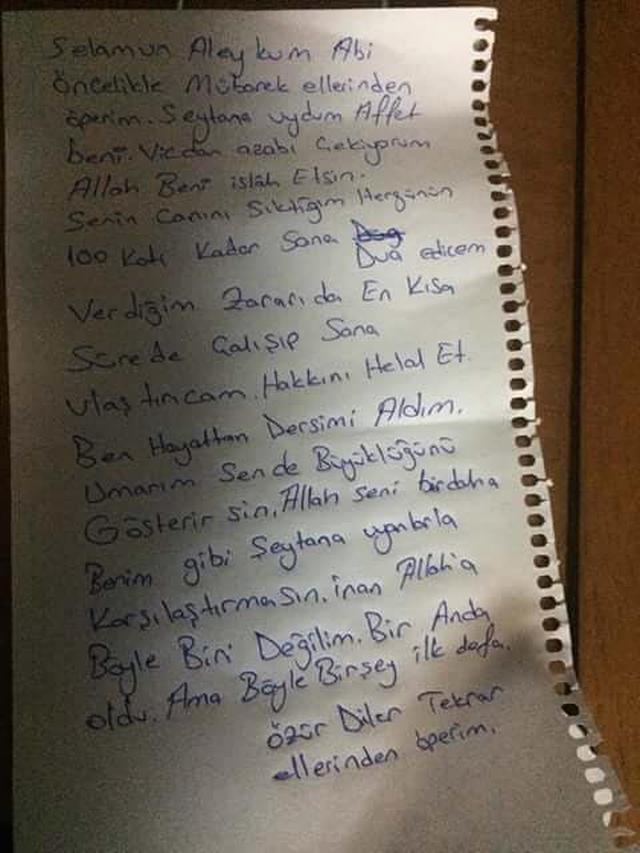 Selamun Aleykum Abi
öncelikle Mübarek ellerinden
öperim. Şeytana uydum Affet
beni. Vicdan azabı Çekiyorum
Allah Beni islâh Etsin.
Senin Canını Sıktığım Hergünün
100 Katı Kadar Sana
Dua edicem
Verdiğim Zararı da En Kısa
Sürede Çalışıp Sana
ulaştırıcam. Hakkını Helal Et.
Ben Hayattan Dersimi Aldım.
Umarım Sende Büyüklüğünü
Gösterirsin. Allah seni birdaha
Benim gibi Şeytana uyanlarla
Karşılaştırmasın. inan Allah'a
Böyle Biri Değilim. Bir Anda
oldu. Ama Böyle Birşey ilk defa.
Özür Diler Tekrar
ellerinden öperim.